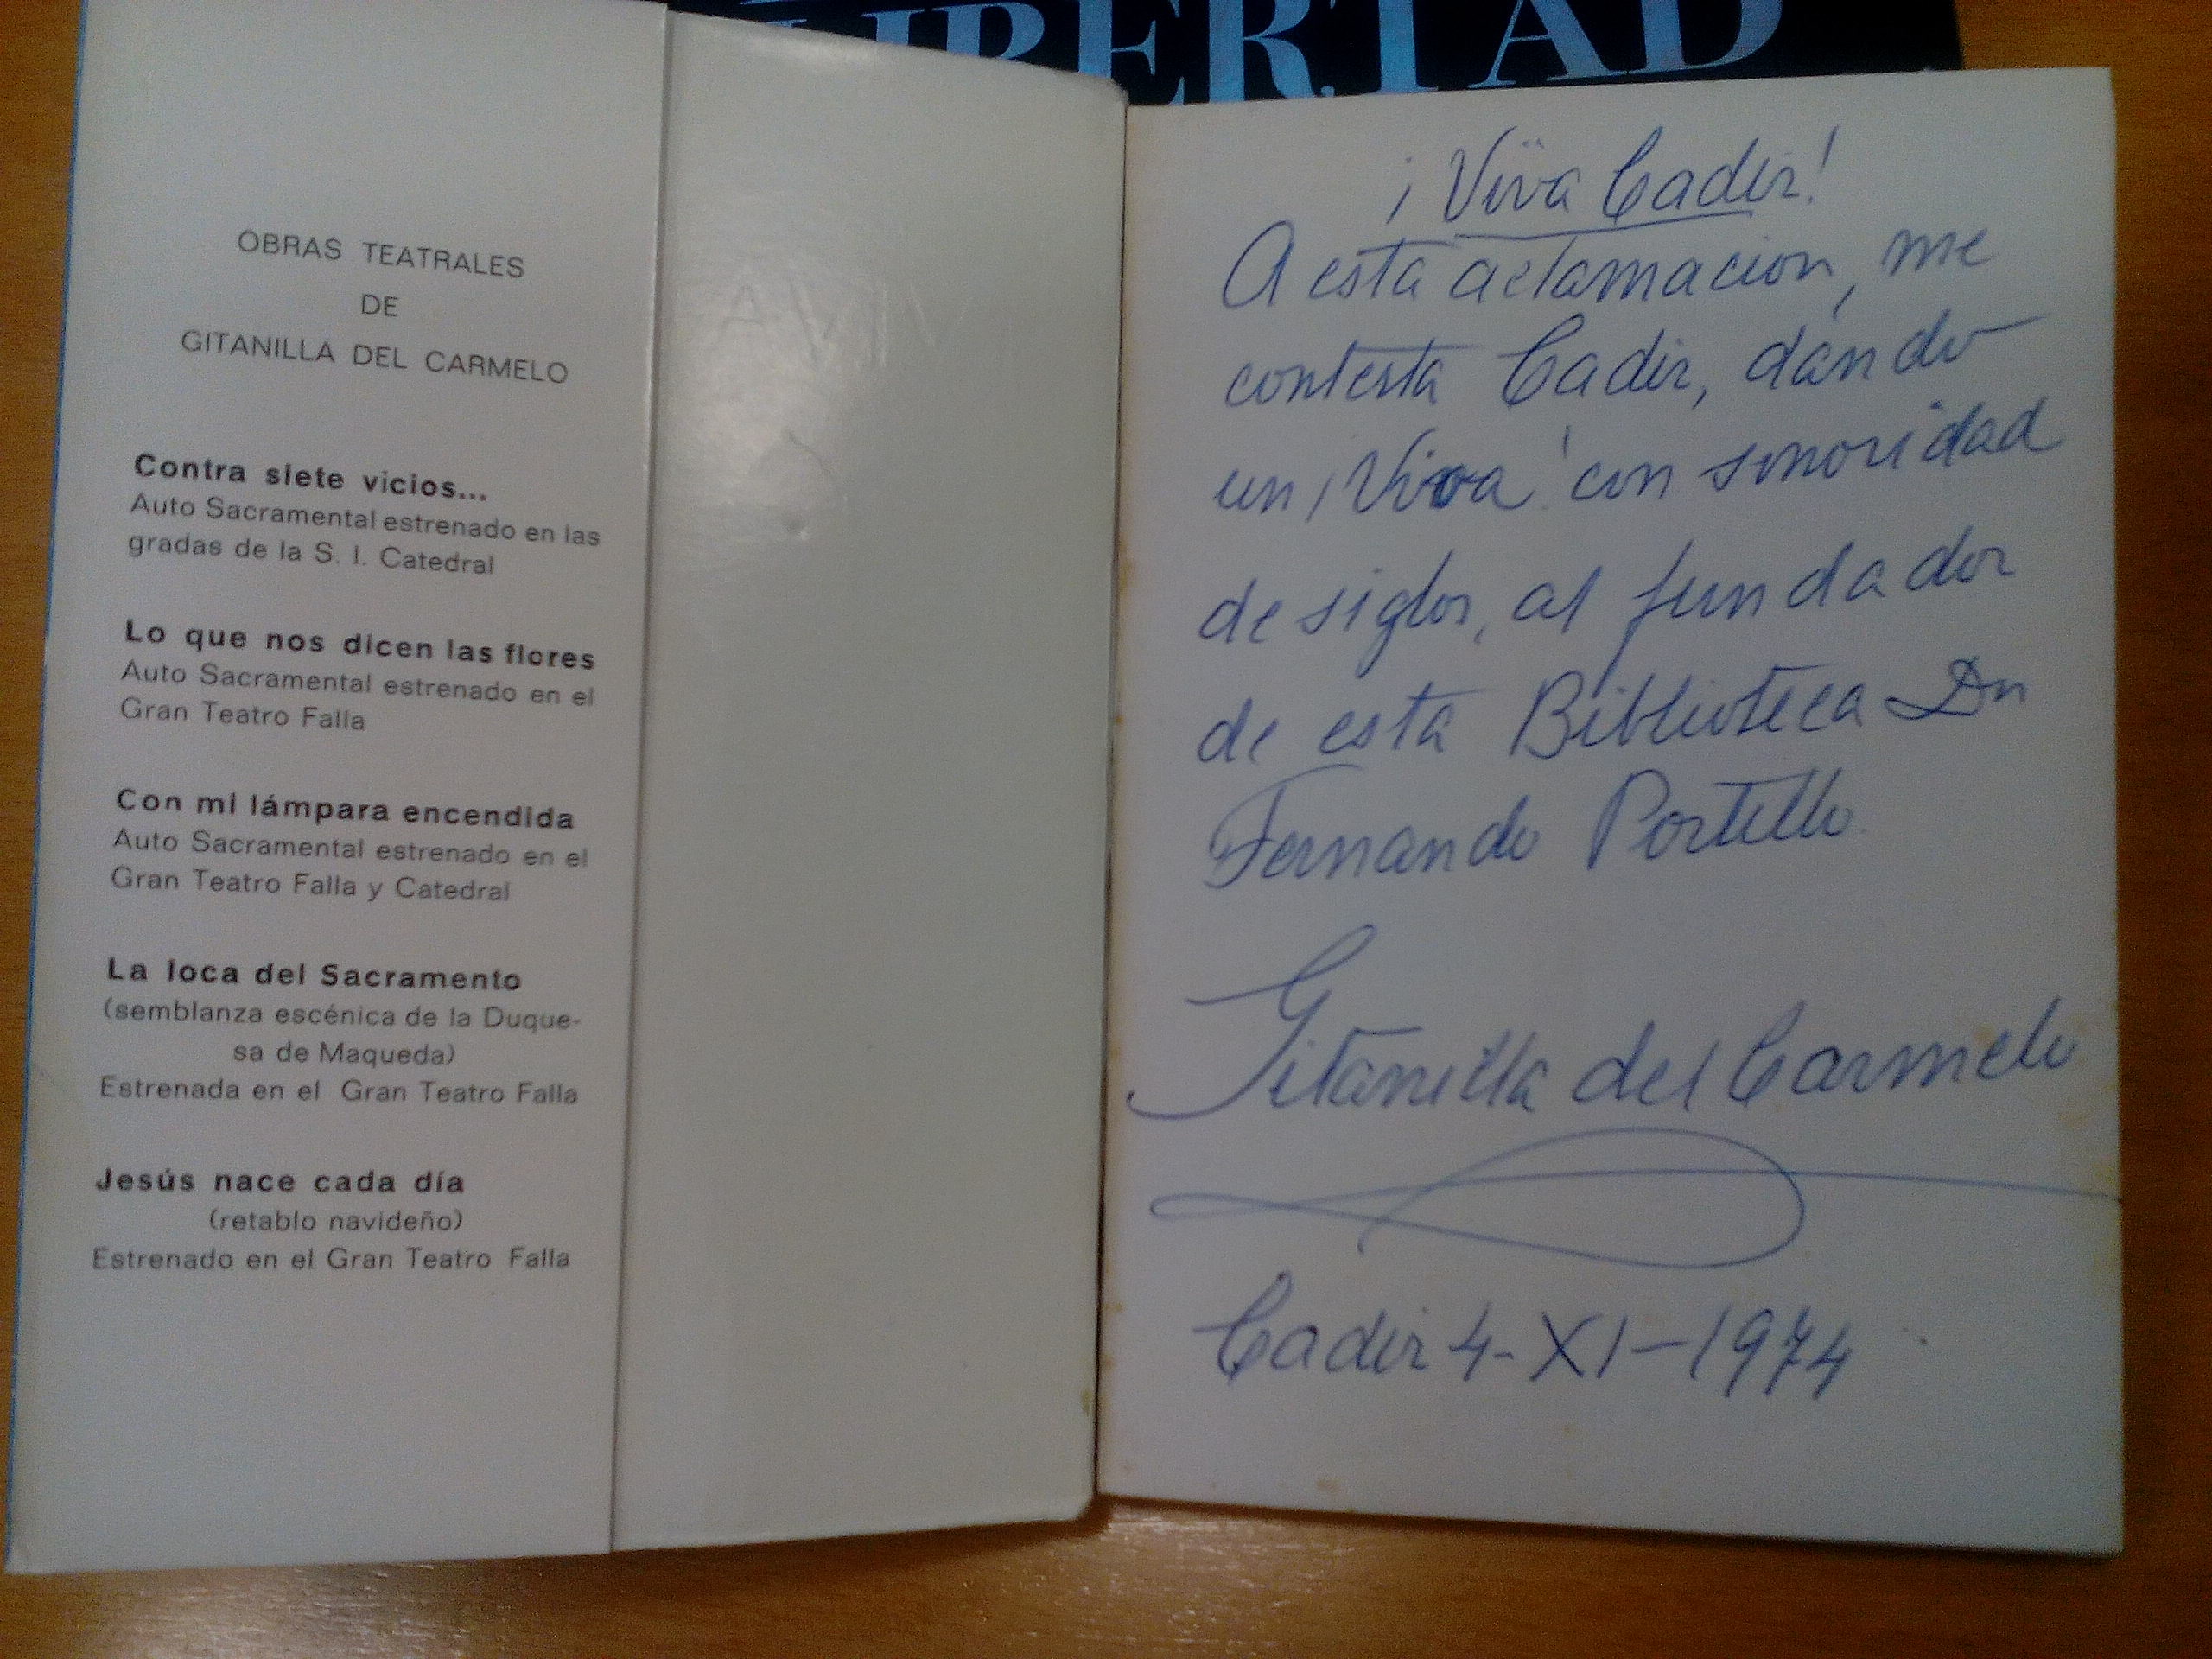 LIBERTAD
OBRAS TEATRALES
DE
GITANILLA DEL CARMELO
Contra siete vicios...
Auto Sacramental estrenado en las
gradas de la S. I. Catedral
Lo que nos dicen las flores
Auto Sacramental estrenado en el
Gran Teatro Falla
Con mi lámpara encendida
Auto Sacramental estrenado en el
Gran Teatro Falla y Catedral
La loca del Sacramento
(semblanza escénica de la Duque-
sa de Maqueda)
Estrenada en el Gran Teatro Falla
Jesús nace cada día
(retablo navideño)
Estrenado en el Gran Teatro Falla
VIVA
¡Viva Cadiz!
A esta aclamacion, me
contesta Cadiz, dando
un ¡Viva! con sonoridad
de siglos, al fundador
de esta Biblioteca Dn
Fernando Portillo
Gitanilla del Carmelo
Cadiz 4-XI-1974